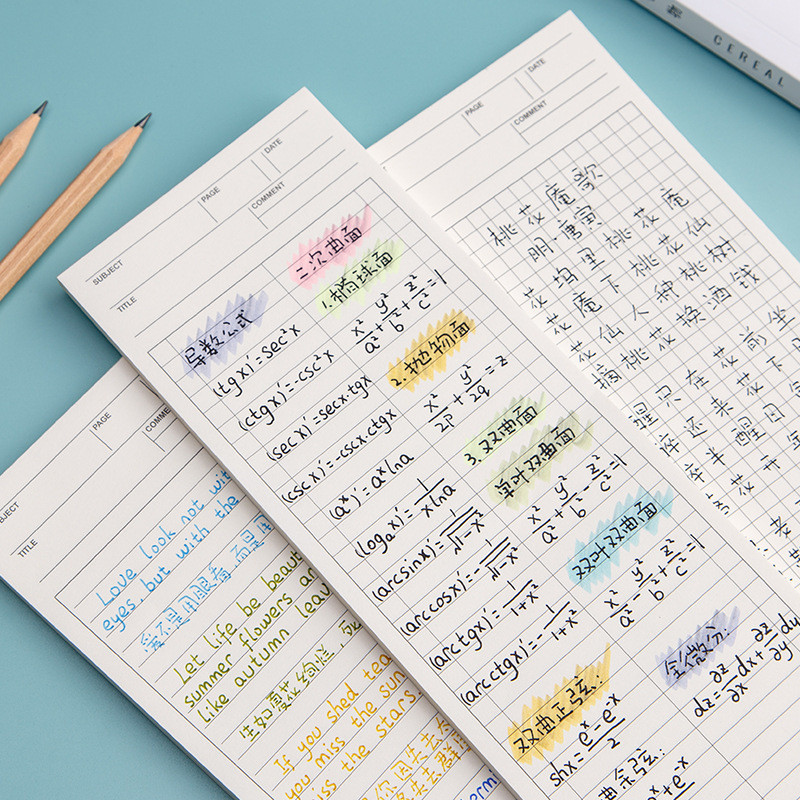 CEREAL
SUBJECT
PAGE
DATE
COMMENT
TITLE
导数公式
(tgx)′=sec²x
(ctgx)′=-csc²x
(secx)′=secx·tgx
(cscx)′=-cscx·ctgx
(aˣ)′=aˣlna
(logₐx)′=1/(xlna)
(arcsinx)′=1/√(1-x²)
(arccosx)′=-1/√(1-x²)
(arctgx)′=1/(1+x²)
(arcctgx)′=-1/(1+x²)
二次曲面
1.椭球面
x²/a²+y²/b²+z²/c²=1
2.抛物面
x²/2p+y²/2q=z
3.双曲面
单叶双曲面
x²/a²+y²/b²-z²/c²=1
双叶双曲面
x²/a²-y²/b²+z²/c²=1
双曲正弦:
shx=(eˣ-e⁻ˣ)/2
曲余弦:
全微分:
dz=∂z/∂x dx+∂z/∂y dy
PAGE
DATE
COMMENT
桃花庵歌
明·唐寅
花坞里桃花庵
花庵下桃花仙
花仙人种桃树
摘桃花换酒钱
醒只在花前坐
醉还来花下
半醉半醒日
花开
PAGE
TITLE
Love look not wit
eyes, but with the
爱不是用眼看,而是用
Let life be beaut
summer flowers an
like autumn leav
生如夏花绚烂,死
If you shed tea
you miss the sun
miss the stars.